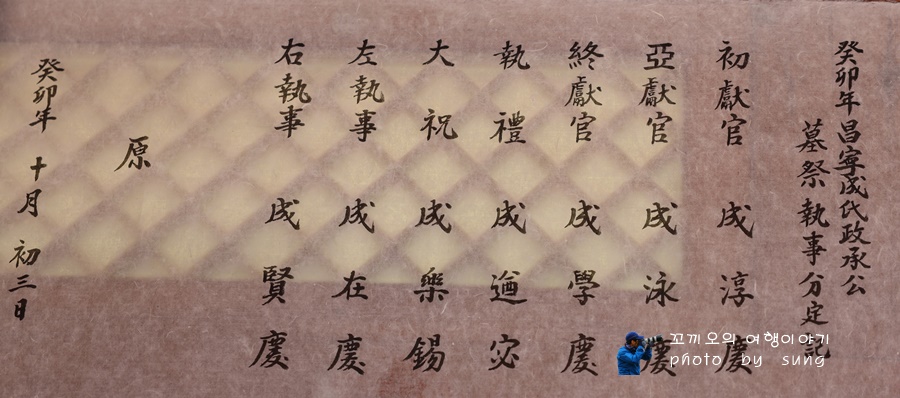 癸卯年 昌寧成氏政承公
墓祭執事分定記
初獻官 成淳慶
亞獻官 成泳慶
終獻官 成學慶
執禮 成逎宓
大祝 成樂錫
左執事 成在慶
右執事 成賢慶
原
癸卯年 十月 初三日
꼬끼오의 여행이야기
photo by sung